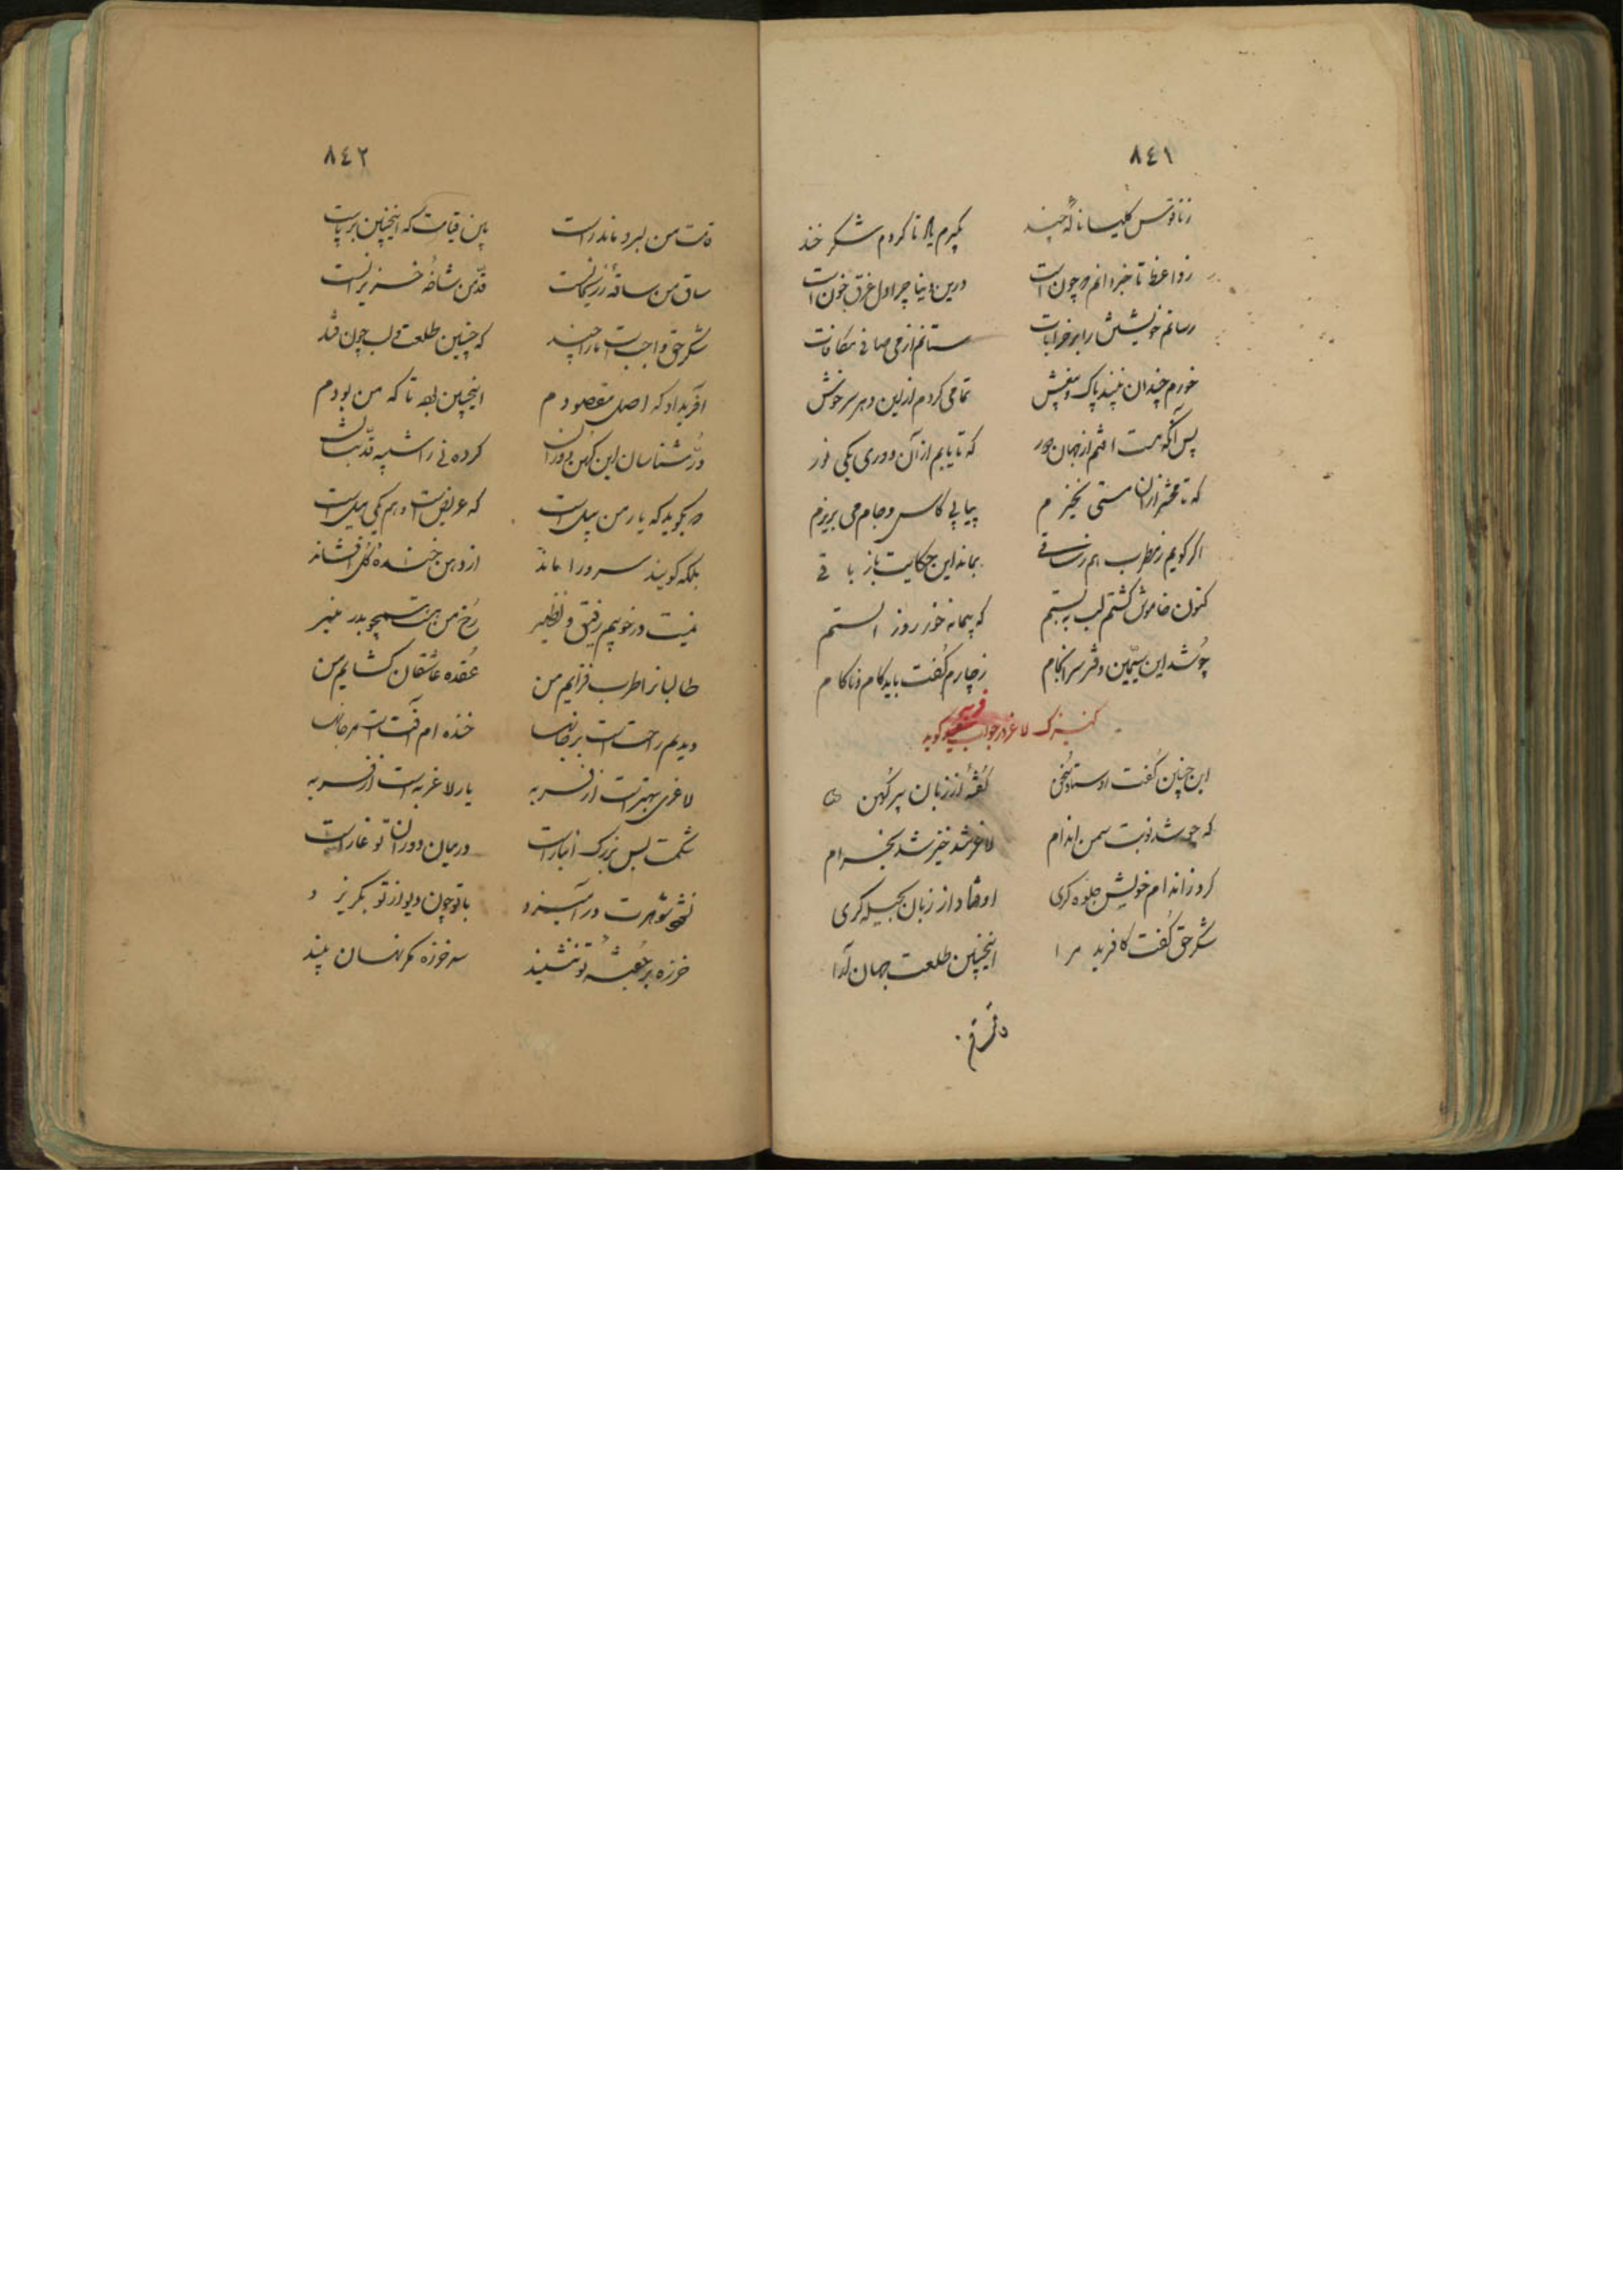 ٨٤١
ز ناقوس کلیسا ناله چند بگیرم یا تا کردم شکر خند
ز واعظ تا خبر دانم که چون است درین دنیا چرا دل غرق خون است
رسانم خویشتن را بر خرابات ستانم از می صافی مکافات
خورم چندان پاک و تمامی کردم ازین دهر سرخوش
پس آنگه مست افتم از جهان دور که تا یابم از آن دوری یکی نور
که تا محشر از آن مستی نخیزم پیاپی کاس و جام می بریزم
اگر گویم ز مطرب هم ز ساقی بماند این حکایت باز باقی
کنون خاموش گشتم لب ببستم که پیمانه خور روز الستم
چو شد این سیمین دفتر سرانجام ز چارم گفت باید کام و ناکام
کنیزک لاغر در جواب فربه گوید
این چنین گفت اوستاد سخن گفته از زبان پیر کهن
که چو شد نوبت سمن اندام لاغر شد خیز شد بخرام
کرد ز اندام خویش جلوه گری او گشاد از زبان بحیله گری
شکر حق گفت کافرید مرا اینچنین طلعت جهان آرا
قامتم
٨٤٢
قامت من بسرو ماند راست باین قیامت که اینچنین برپاست
ساق من ساقه قد من شاخه خیزرانست
شکر حق واجبست ما را چند که چنین طلعت و لب چون قند
آفریداد که اصل مقصودم اینچنین بود تا که من بودم
در شناسان این کهن دوران کرده نی را شبیه قد بتان
که بگوید که یار من پیل است که عریض است و هم یکی میل است
بلکه گویند سرو را ماند از دهن خنده گل افشاند
نیست در خوبیم رفیق و نظیر رخ من هست همچو بدر منیر
طالبانرا طرب فزایم من عقده عاشقان گشایم من
دیدیم راحت است بر جانها خنده ام آفت است مرجانها
لاغری بهتر است از فربه یار لاغر به است از فربه
شکمت بس بزرگ انبار است در میان دو ران تو غار است
شوهرت در آمیزد با تو چون دیو از تو بگریزد
خرزه بر تو ننشیند سر خرزه مگر نسان بیند